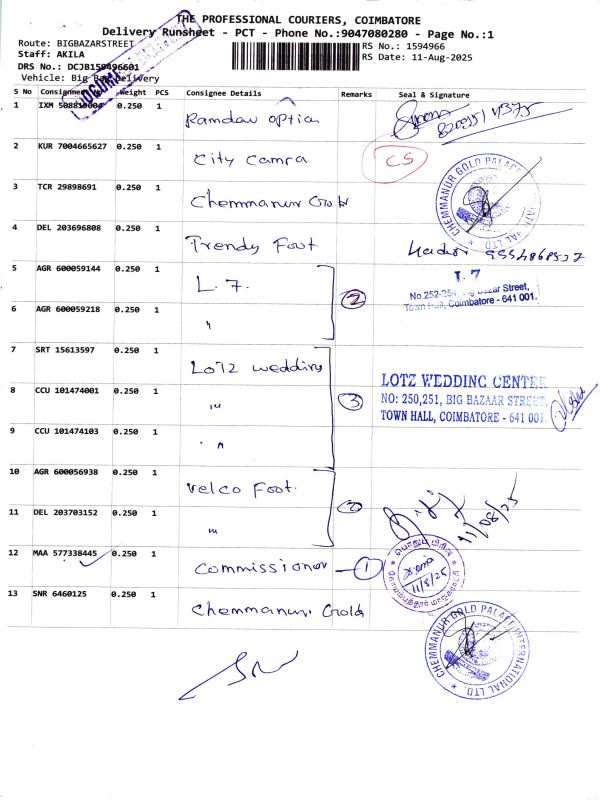 THE PROFESSIONAL COURIERS, COIMBATORE
Delivery Runsheet - PCT - Phone No.:9047080280 - Page No.:1
Route: BIGBAZARSTREET
RS No.: 1594966
Staff: AKILA
RS Date: 11-Aug-2025
DRS No.: DCJB159496601
Vehicle: Big Delivery
S No Consignment Weight PCS Consignee Details Remarks Seal & Signature
1 IXM 0.250 1 Ramdav option
2 KUR 7004665627 0.250 1 City Camra CS
3 TCR 29898691 0.250 1 Chemmanur Gold
CHEMMANUR GOLD PALACE INTERNATIONAL LTD.
4 DEL 203696808 0.250 1 Trendy Foot
5 AGR 600059144 0.250 1 L. 7. 2
L 7
No.252-254, Big Bazar Street,
Town Hall, Coimbatore - 641 001.
6 AGR 600059218 0.250 1 "
7 SRT 15613597 0.250 1 LOTZ wedding
LOTZ WEDDING CENTER
NO: 250,251, BIG BAZAAR STREET,
TOWN HALL, COIMBATORE - 641 001.
8 CCU 101474001 0.250 1 " 3
9 CCU 101474103 0.250 1 "
10 AGR 600056938 0.250 1 Velco Foot.
11 DEL 203703152 0.250 1 " 2 11/08/25
12 MAA 577338445 0.250 1 Commissioner 1
11/8/25
13 SNR 6460125 0.250 1 Chemmanur Gold
CHEMMANUR GOLD PALACE INTERNATIONAL LTD.